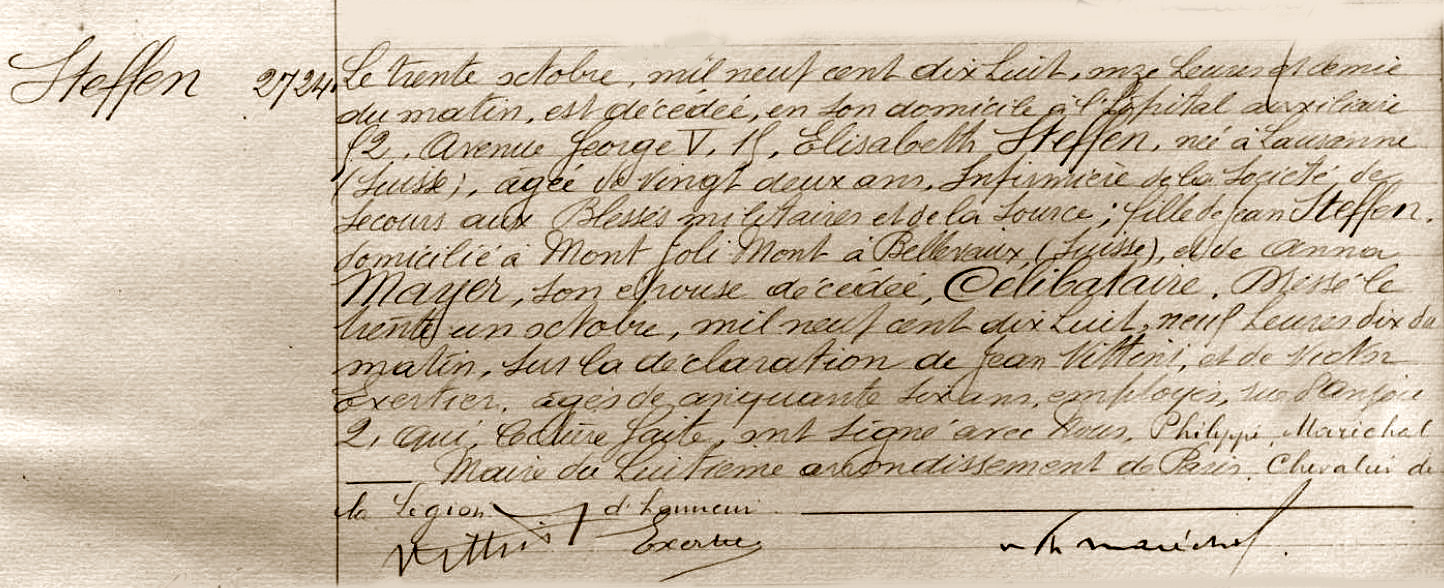 Steffen 2724
Le trente octobre, mil neuf cent dix huit, onze heures et demie
du matin, est décédée, en son domicile à l'hôpital auxiliaire
Avenue George V, Elisabeth Steffen, née à Lausanne
(Suisse), âgée de vingt deux ans, Infirmière de la Société de
Secours aux Blessés militaires et de la Source ; fille de Jean Steffen,
domicilié à Mont Joli Mont à Bellevaux (Suisse), et de Anna
Mayer, son épouse décédée, Célibataire. Dressé le
trente un octobre, mil neuf cent dix huit, neuf heures dix du
matin, sur la déclaration de Jean Vittini, et de Victor
Exertier, âgés de cinquante six ans, employés, rue d'Anjou
2, qui, lecture faite, ont signé avec Nous, Philippe Maréchal
Maire du huitième arrondissement de Paris, Chevalier de
la Légion d'honneur
Vittini Exertier Ph Maréchal